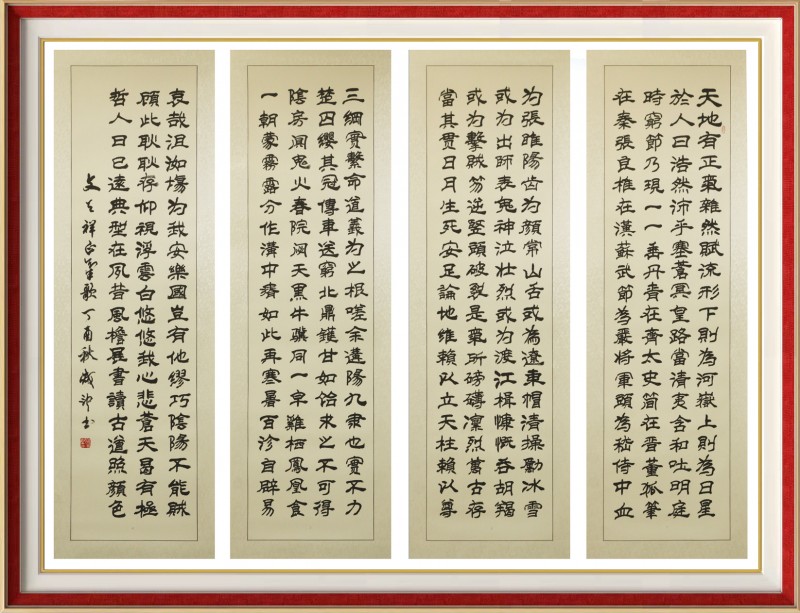 天地有正氣雜然賦流形下則為河嶽上則為日星
於人曰浩然沛乎塞蒼冥皇路當清夷含和吐明庭
時窮節乃現一一垂丹青在齊太史簡在晉董狐筆
在秦張良椎在漢蘇武節為嚴將軍頭為嵇侍中血
为張睢陽齿為顏常山舌或為遼東帽清操勵冰雪
或為出師表鬼神泣壯烈或為渡江楫慷慨吞胡羯
或為擊賊笏逆竪頭破裂是氣所磅礴凜烈萬古存
當其貫日月生死安足論地維賴以立天柱賴以尊
三綱實繫命道義为之根嗟余遘陽九隸也實不力
楚囚纓其冠傳車送窮北鼎鑊甘如飴求之不可得
陰房闃鬼火春院閟天黑牛驥同一牢雞栖鳳凰食
一朝蒙霧露分作溝中瘠如此再寒暑百沴自辟易
哀哉沮洳場为我安樂國豈有他繆巧陰陽不能賊
顧此耿耿存仰視浮雲白悠悠我心悲蒼天曷有極
哲人日已遠典型在夙昔風檐展書讀古道照顏色
文天祥正氣歌丁酉秋